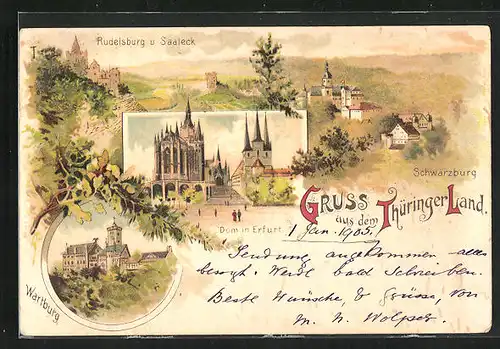 Rudelsburg u Saaleck
Schwarzburg
GRUSS
aus dem
Thüringer Land.
Dom in Erfurt
1 Jan. 1905.
Wartburg
Sendung angekommen - alles
besorgt. Werde bald schreiben.
Beste Wünsche, & Grüsse, von
M. N.